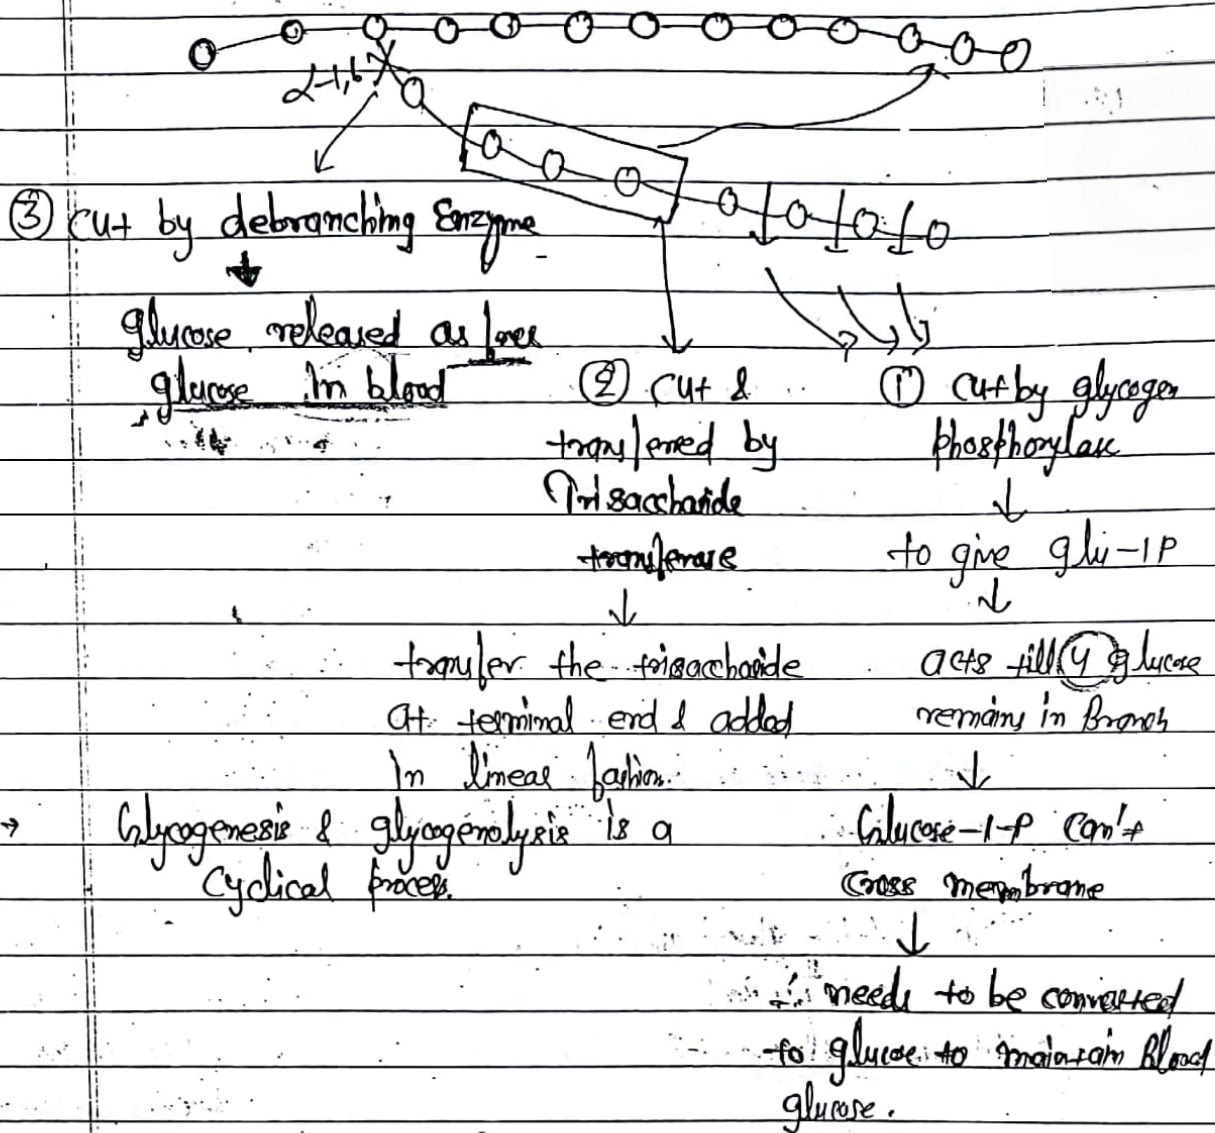 α-1,6
③ cut by debranching Enzyme
glucose released as free
glucose in blood
② cut &
transferred by
Trisaccharide
transferase
transfer the trisaccharide
at terminal end & added
in linear fashion.
① cut by glycogen
phosphorylase
to give glu-1P
acts till 4 glucose
remains in Branch
Glucose-1-P can't
cross membrane
∴ needs to be converted
to glucose to maintain Blood
glucose.
→ Glycogenesis & glycogenolysis is a
Cyclical process.